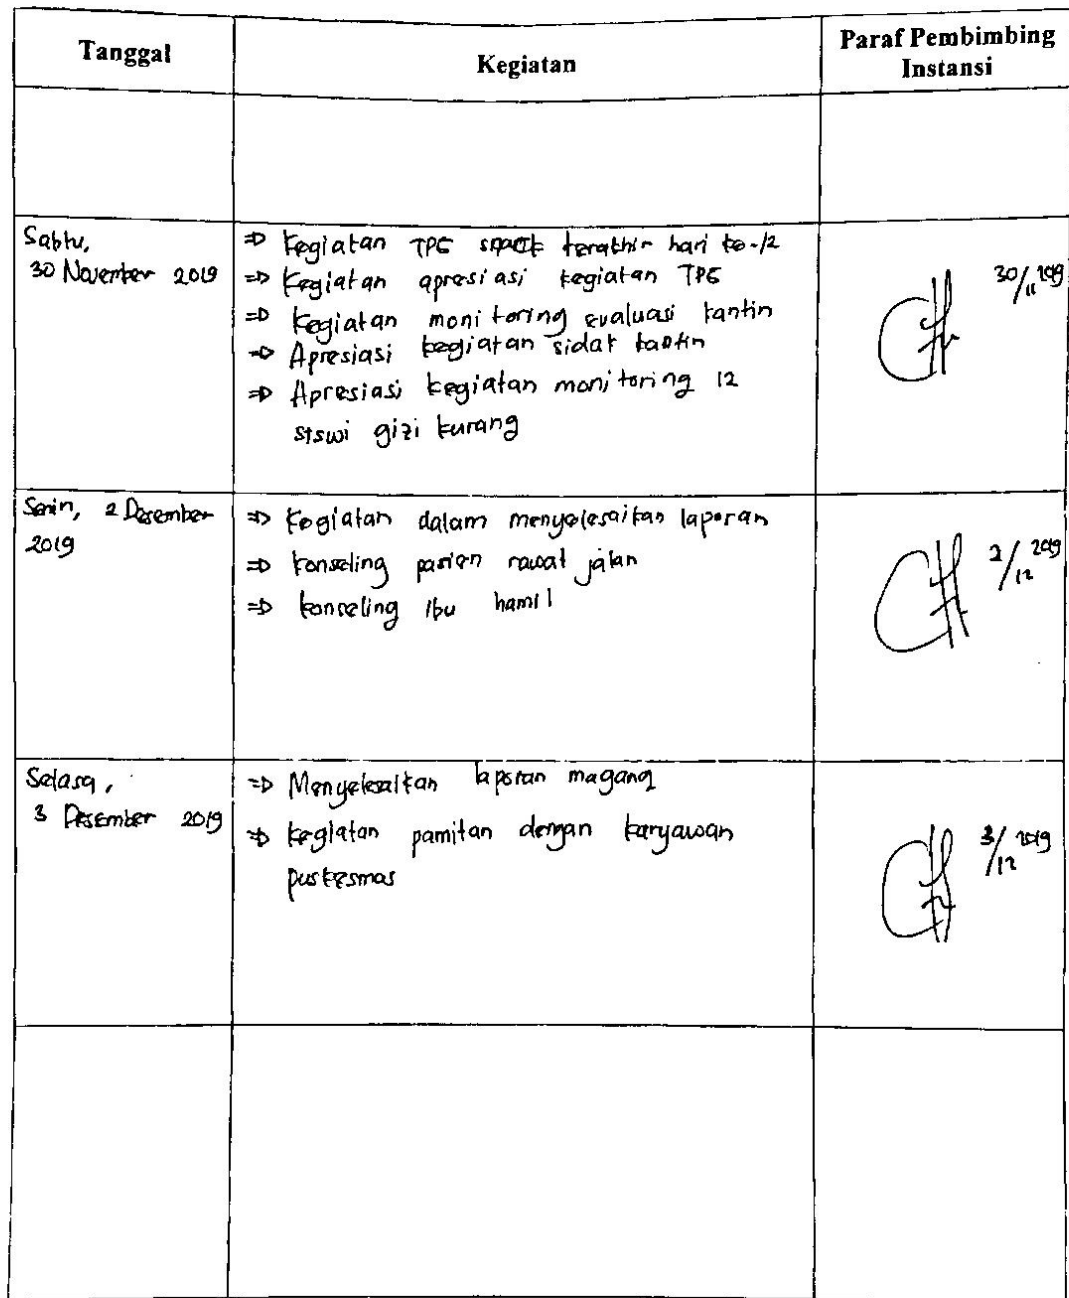 Tanggal
Kegiatan
Paraf Pembimbing
Instansi
Sabtu,
30 November 2019
⇒ Kegiatan TPG terakhir hari ke-12
⇒ Kegiatan apresiasi kegiatan TPG
⇒ Kegiatan monitoring evaluasi kantin
⇒ Apresiasi kegiatan sidak kantin
⇒ Apresiasi kegiatan monitoring 12
siswi gizi kurang
30/11 2019
Senin, 2 Desember
2019
⇒ Kegiatan dalam menyelesaikan laporan
⇒ konseling pasien rawat jalan
⇒ konseling ibu hamil
2/12 2019
Selasa,
3 Desember 2019
⇒ Menyelesaikan laporan magang
⇒ kegiatan pamitan dengan karyawan
puskesmas
3/12 2019